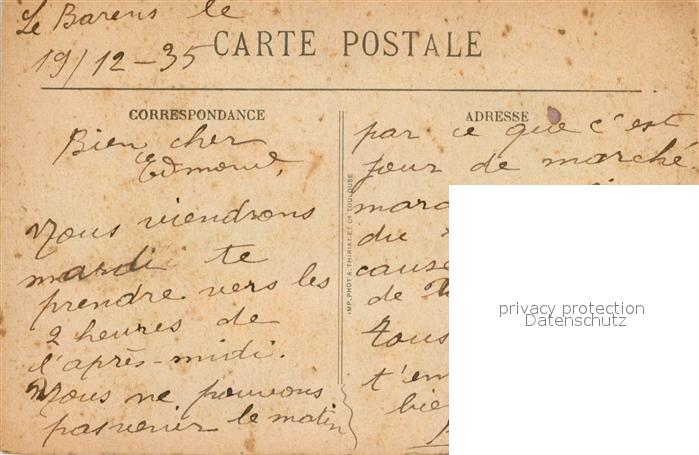 Le Barens le
19/12-35
CARTE POSTALE
CORRESPONDANCE
Bien cher
Edmond,
Nous viendrons
mardi te
prendre vers les
2 heures de
l'après-midi.
Nous ne pouvons
pas venir le matin
IMP. PHOT A. THIRIAT ET Cie TOULOUSE
ADRESSE
par ce que c'est
jour de marché.
du
cause
de
Tous
privacy protection
Datenschutz